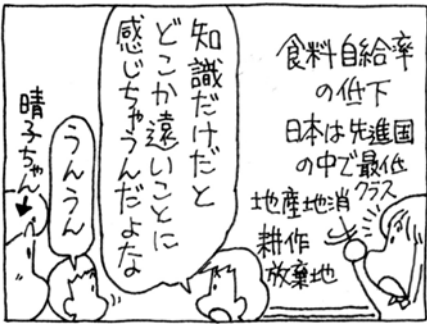 食料自給率
の低下
日本は先進国
の中で最低
クラス
地産地消
耕作
放棄地
知識だけだと
どこか遠いことに
感じちゃうんだよな
うんうん
晴子ちゃん